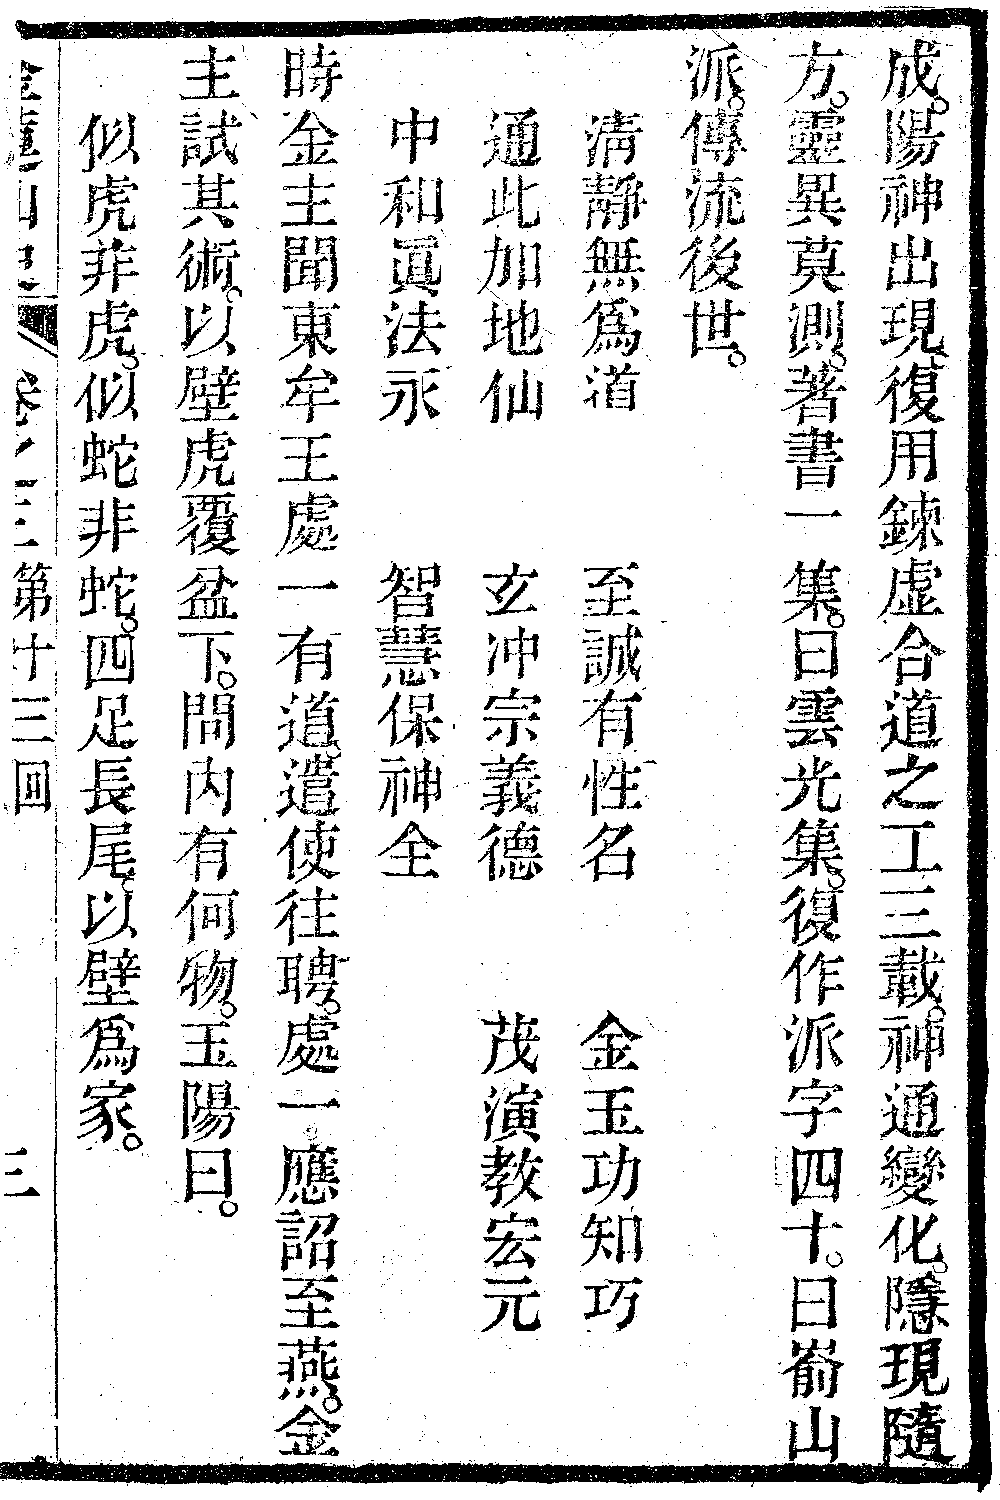 成。陽神出現。復用鍊虛合道之工三載。神通變化。隱現隨
方。靈異莫測。著書一集。曰雲光集。復作派字四十。曰嵛山
派。傳流後世。
清靜無爲道　至誠有性名　金玉功知巧
通此加地仙　玄冲宗義德　茂演教宏元
中和眞法永　智慧保神全
時金主聞東牟王處一有道。遣使往聘。處一應詔至燕。金
主試其術。以壁虎覆盆下。問內有何物。玉陽曰。
似虎非虎。似蛇非蛇。四足長尾。以壁爲家。
卷之三 第十三回
三